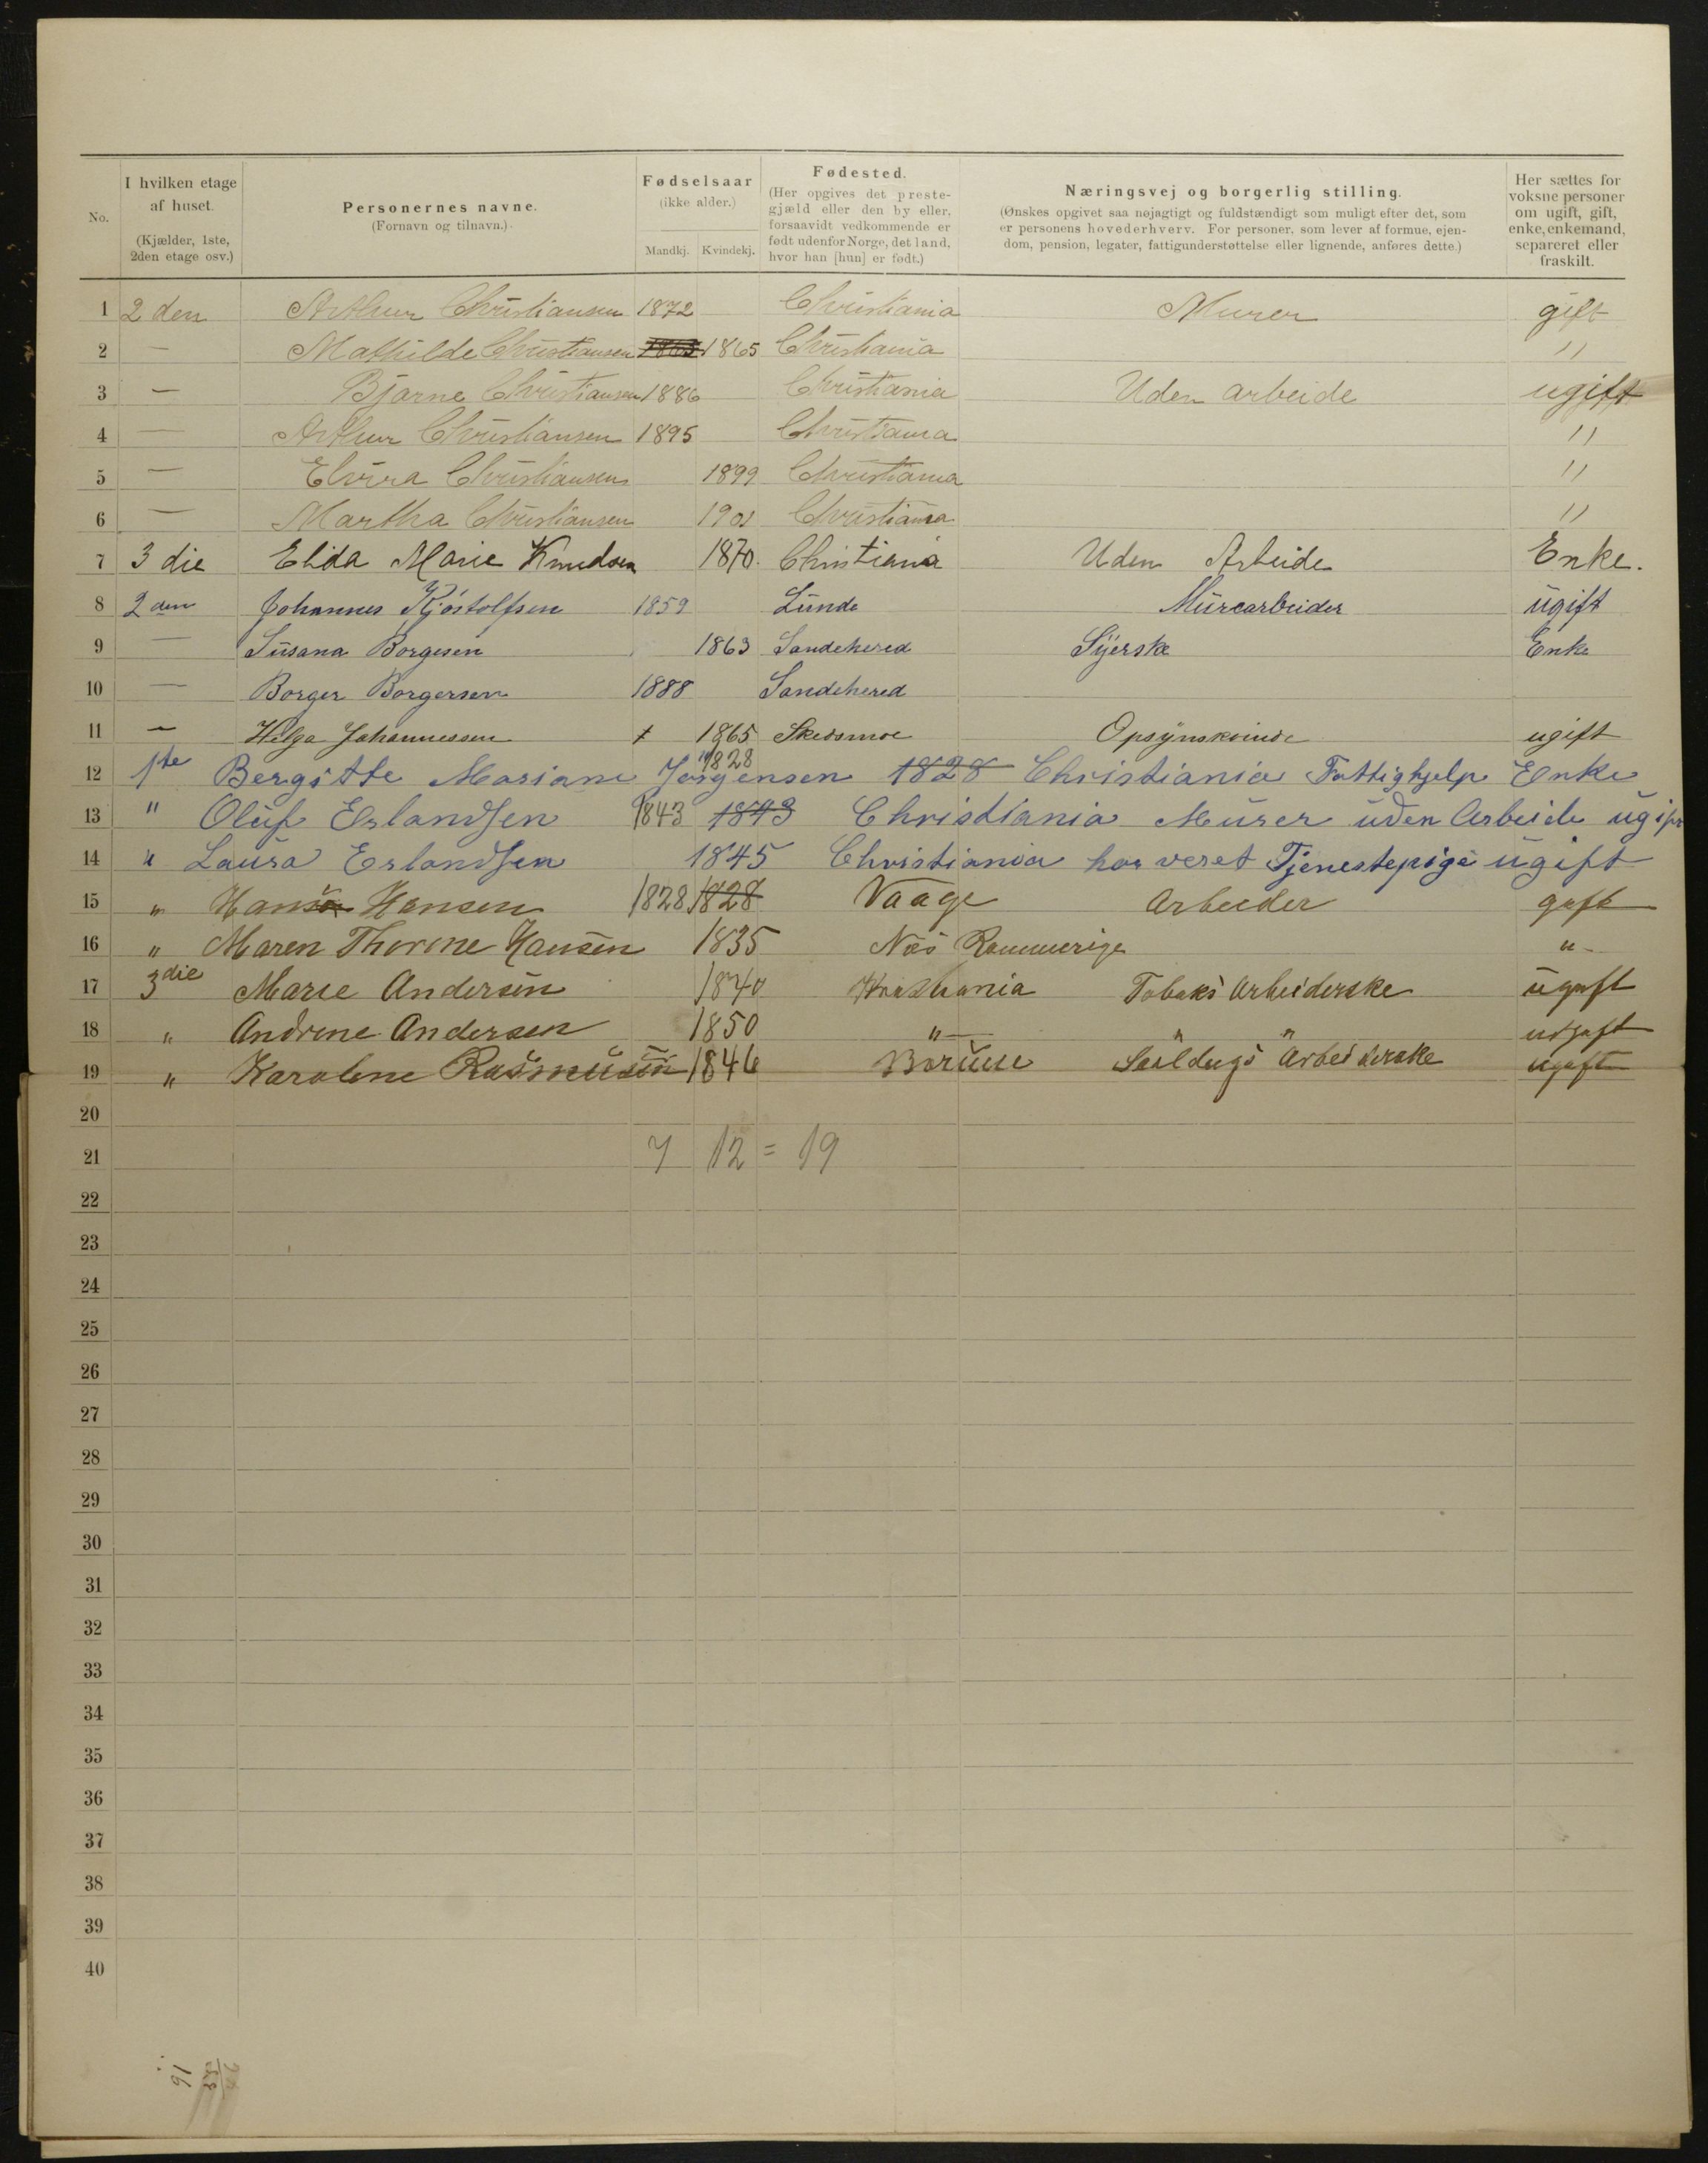 No.
I hvilken etage
af huset.
(Kjælder, 1ste,
2den etage osv.)
Personernes navne.
(Fornavn og tilnavn.)
Fødselsaar
(ikke alder.)
Mandkj. Kvindekj.
Fødested.
(Her opgives det preste-
gjæld eller den by eller,
forsaavidt vedkommende er
født udenfor Norge, det land,
hvor han [hun] er født.)
Næringsvej og borgerlig stilling.
(Ønskes opgivet saa nøjagtigt og fuldstændigt som muligt efter det, som
er personens hovederhverv. For personer, som lever af formue, ejen-
dom, pension, legater, fattigunderstøttelse eller lignende, anføres dette.)
Her sættes for
voksne personer
om ugift, gift,
enke, enkemand,
separeret eller
fraskilt.
1 2 den Arthur Christiansen 1872 Christiania Murer gift
2 — Mathilde Christiansen 1865 1865 Christiania "
3 — Bjarne Christiansen 1886 Christiania Uden arbeide ugift
4 — Arthur Christiansen 1895 Christiania "
5 — Elvira Christiansen 1899 Christiania "
6 — Martha Christiansen 1901 Christiania "
7 3 die Elida Marie Knudsen 1870. Christiania Uden Arbeide Enke.
8 2 den Johannes Kjøstolfsen 1859 Lunde Murearbeider ugift
9 — Susana Borgesen 1863 Sandehered Syerske Enke
10 — Borger Borgersen 1888 Sandehered
11 — Helga Johannessen + 1865 Skedsmoe Opsynskvinde ugift
12 1ste Bergitte Mariane Jørgensen 1828 1828 Christiania Fattighjelp Enke
13 " Oluf Erlandsen 1843 1843 Christiania Murer uden Arbeide ugift
14 " Laura Erlandsen 1845 Christiania har veret Tjenestepige ugift
15 " Hans Hansen 1828 1828 Vaage Arbeider gift
16 " Maren Thorine Hansen 1835 Nes Rommerige "
17 3die Marie Andersen 1840 Kristiania Tobaks Arbeiderske ugift
18 " Andrine Andersen 1850 " " " ugift
19 " Karoline Rasmusen 1846 Seildugs Arbeiderske ugift
20
21 7 12 = 19
22
23
24
25
26
27
28
29
30
31
32
33
34
35
36
37
38
39
40
16